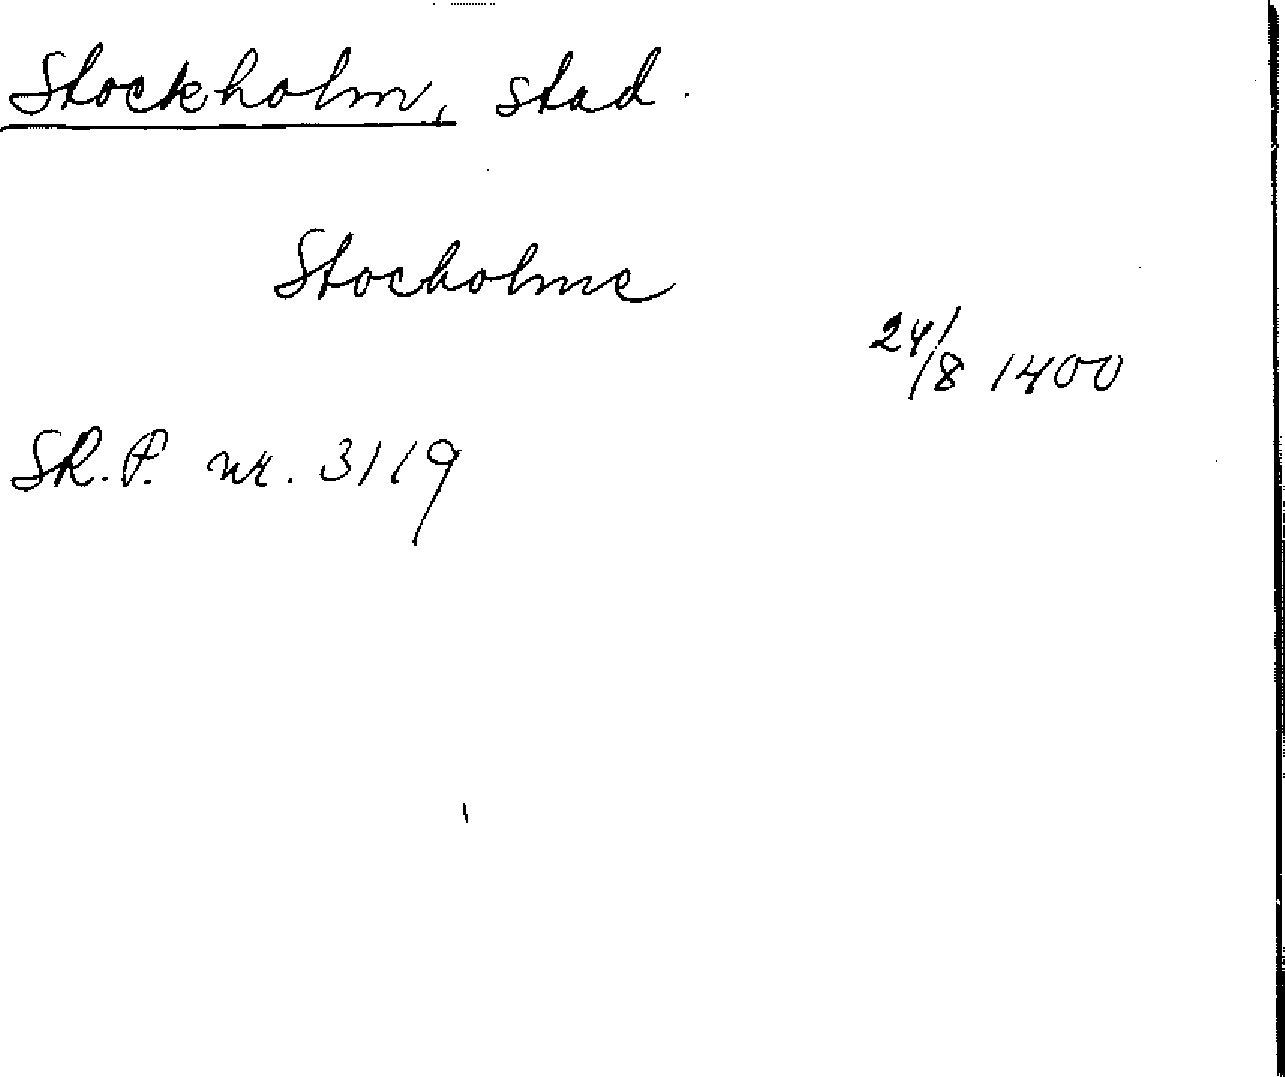 Stockholm, stad.
Stocholme
24/8 1400
SR.P. nr. 3119